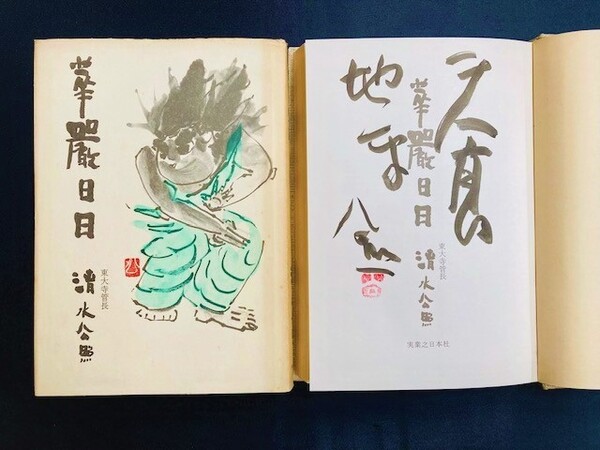 華厳日日
東大寺管長
清水公照
天高
地平
華厳日日
東大寺管長
清水公照
実業之日本社